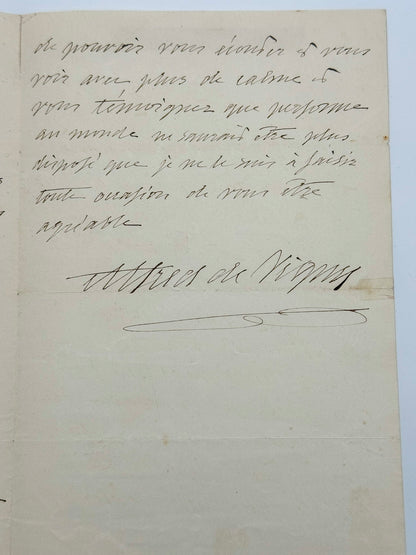 de pouvoir vous écouter & vous
voir avec plus de calme &
vous témoigner que personne
au monde ne saurait être plus
disposé que je ne le suis à saisir
toute occasion de vous être
agréable
Alfred de Vigny